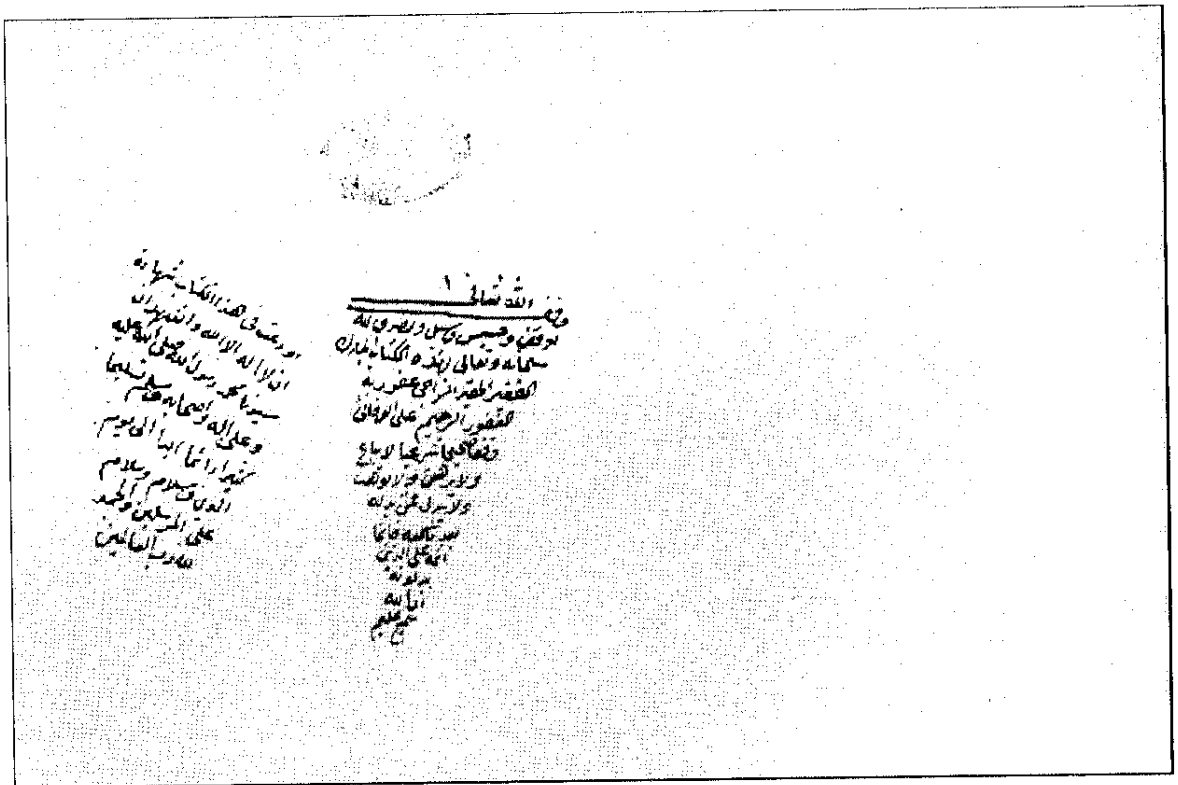 وقف الله تعالى
اوقف وحبس وسبل وتصدق لله
سبحانه وتعالى بهذه الكتاب المبارك
الفقير الحقير الراجى عفو ربه
الغفور الرحيم على
وقفا صحيحا شرعيا لا يباع
ولا يرهن ولا يوهب
ولا يبدل فمن بدله
بعد ما سمعه فانما
اثمه على الذين
يبدلونه
ان الله
سميع عليم
اودعت فى هذا الكتاب شهادة
ان لا اله الا الله واشهد ان
سيدنا محمد رسول الله صلى الله عليه
وعلى اله واصحابه وسلم تسليما
كثيرا دائما ابدا الى يوم
الدين وسلام
على المرسلين والحمد
لله رب العالمين